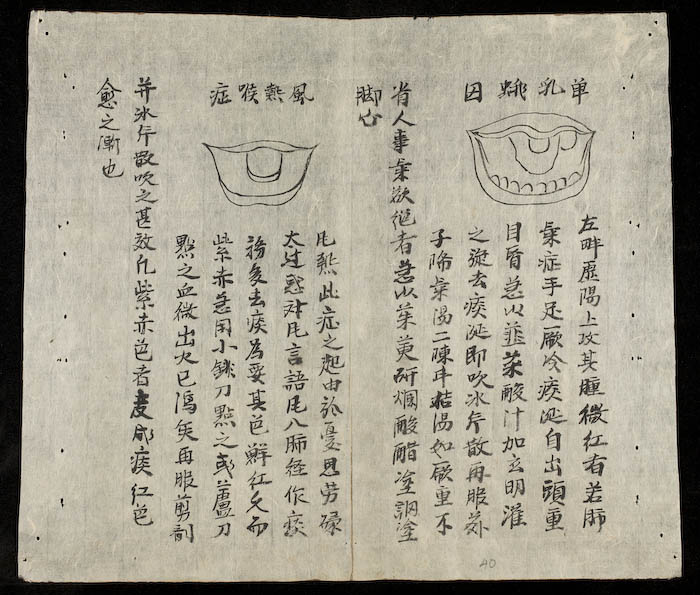 单乳蛾
左畔虛陽上攻其腫微紅者若肺
氣症手足厥冷痰涎自出頭重
目昏急以韮菜酸汁加玄明灌
之旋去痰涎即吹冰片散再服苏
子降氣湯二陳平桔湯如厥重不
省人事氣欲絕者急以茱萸研爛酸醋塗調塗
脚心
風熱喉症
熱此症之起由於憂思勞碌
太过感言語肺经作痰
務多去痰為要其色鮮紅久而
紫赤急用小刀點之或蘆刀
點之血微出火已瀉矣再服剪
并冰片散吹之甚效凡紫赤色者成痰紅色
愈之漸也
40